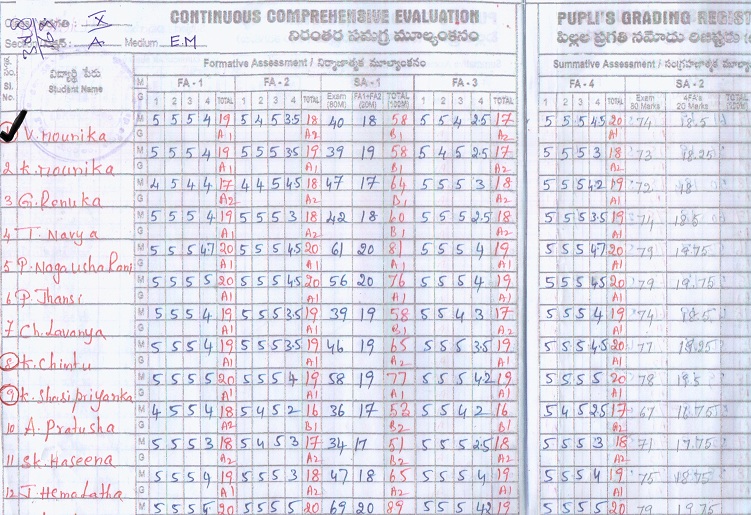 CONTINUOUS COMPREHENSIVE EVALUATION PUPLI'S GRADING REGIS
తరగతి : X నిరంతర సమగ్ర మూల్యాంకనం పిల్లల ప్రగతి నమోదు రిజిష్టరు
A Medium E.M
Formative Assessment / నిర్మాణాత్మక మూల్యాంకనం Summative Assessment / సంగ్రహణాత్మక మూల్యాంకనం
క్ర. సం. Sl. No. విద్యార్థి పేరు Student Name M FA - 1 FA - 2 SA - 1 FA - 3 FA - 4 SA - 2
G 1 2 3 4 TOTAL 1 2 3 4 TOTAL Exam (80M) FA1+FA2 (20M) TOTAL (100M) 1 2 3 4 TOTAL 1 2 3 4 TOTAL Exam 80 Marks 4FA's 20 Marks TOTAL
1 V. Mounika M 5 5 5 4 19 5 4 5 3.5 18 40 18 58 5 5 4 2.5 17 5 5 5 4.5 20 74 18.5
G A1 A2 B1 A2 A1
2 K. Mounika M 5 5 5 4 19 5 5 5 3.5 19 39 19 58 5 4 5 2.5 17 5 5 5 3 18 73 18.25
G A1 A1 B1 A2 A2
3 G. Renuka M 4 5 4 4 17 4 4 5 4.5 18 47 17 64 5 5 5 3 18 5 5 5 4.2 19 72 18
G A2 A2 B1 A2 A1
4 T. Navya M 5 5 5 4 19 5 5 5 3 18 42 18 60 5 5 5 2.5 18 5 5 5 3.5 19 74 18.5
G A1 A2 B1 A2 A1
5 P. Naga usha Rani M 5 5 5 4.7 20 5 5 5 4.5 20 61 20 81 5 5 5 4 19 5 5 5 4.7 20 79 19.75
G A1 A1 A1 A1 A1
6 P. Jhansi M 5 5 5 5 20 5 5 5 4.5 20 56 20 76 5 5 5 4 19 5 5 5 4.5 20 79 19.75
G A1 A1 A1 A1
7 Ch. Lavanya M 5 5 5 4 19 5 5 5 3.5 19 39 19 58 5 5 4 3 17 5 5 5 4 19 74 18.5
G A1 A1 B1 A2 A1
8 K. Chintu M 5 5 5 4 19 5 5 5 3.5 19 46 19 65 5 5 5 3.5 19 5 5 5 4.5 20 77 18.25
G A1 A1 A2 A1 A1
9 K. Shasi priyanka M 5 5 5 5 20 5 5 5 4 19 58 19 77 5 5 5 4.2 19 5 5 5 5 20 78 19.5
G A1 A1 A2 A1 A1
10 A. Pratusha M 4 5 5 4 18 5 4 5 2 16 36 17 53 5 5 4 2 16 5 4 5 2.5 17 67 16.75
G A2 B1 B1 A2
11 Sk. Haseena M 5 5 5 3 18 5 4 5 3 17 34 17 51 5 5 5 2.5 18 5 5 5 3 18 71 17.75
G A2 A2 A2 A2
12 J. Hemalatha M 5 5 5 4 19 5 5 5 3 18 47 18 65 5 5 5 4 19 5 5 5 4 19 75 18.75
G A1 A2 A2 A1 A1
M 5 5 5 20 5 5 5 5 20 69 20 89 5 5 5 4.2 19 5 5 5 5 20 79 19.75